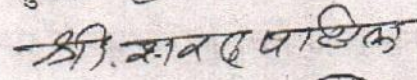 श्री. शरद पाटील